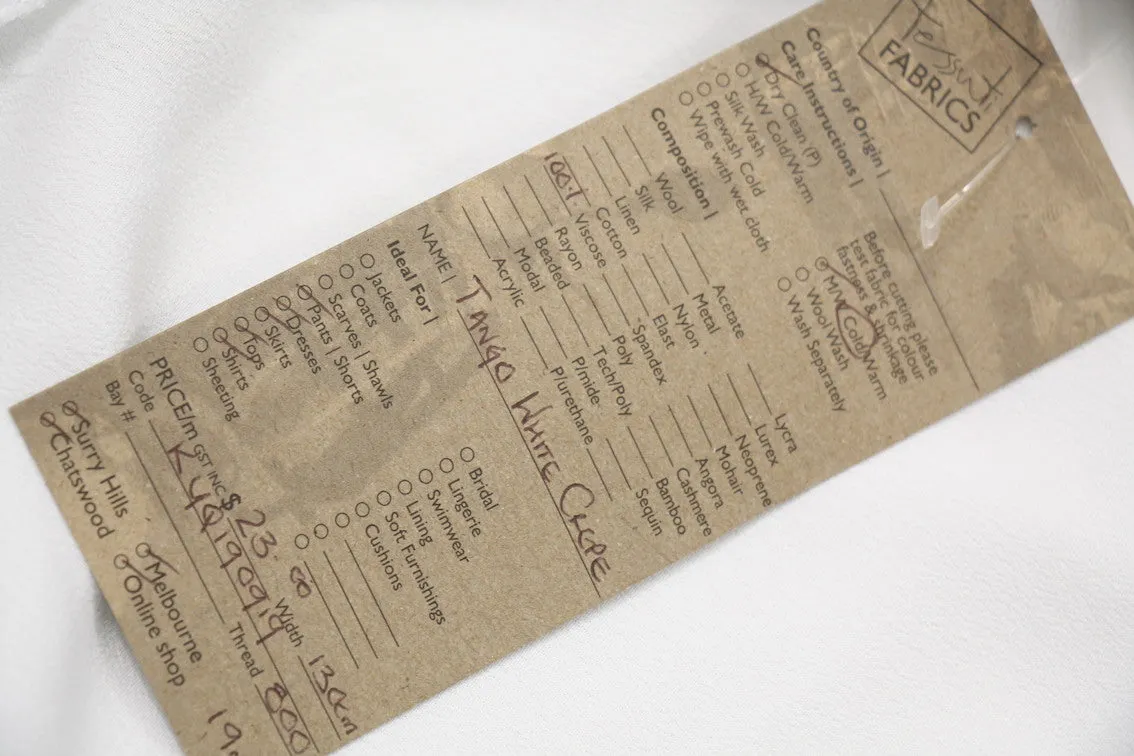 tessuti
FABRICS
Country of Origin |
Care Instructions |
Dry Clean (P)
H/W Cold/Warm
Silk Wash
Prewash Cold
Wipe with wet cloth
Before cutting please
test fabric for colour
fastness & shrinkage
M/W Cold/Warm
Wool Wash
Wash Separately
Composition |
Wool
Silk
Linen
Cotton
100% Viscose
Rayon
Beaded
Modal
Acrylic
Acetate
Metal
Nylon
Elast
-Spandex
Poly
Tech/Poly
P/mide-
P/urethane
Lycra
Lurex
Neoprene
Mohair
Angora
Cashmere
Bamboo
Sequin
NAME | TANGO WHITE CREPE
Ideal For |
Jackets
Coats
Scarves | Shawls
Pants | Shorts
Dresses
Skirts
Tops
Shirts
Sheeting
Bridal
Lingerie
Swimwear
Lining
Soft Furnishings
Cushions
PRICE/m GST INC $ 23.00 Width 130cm
Code Thread 800
Bay #
Surry Hills
Chatswood
Melbourne
Online shop